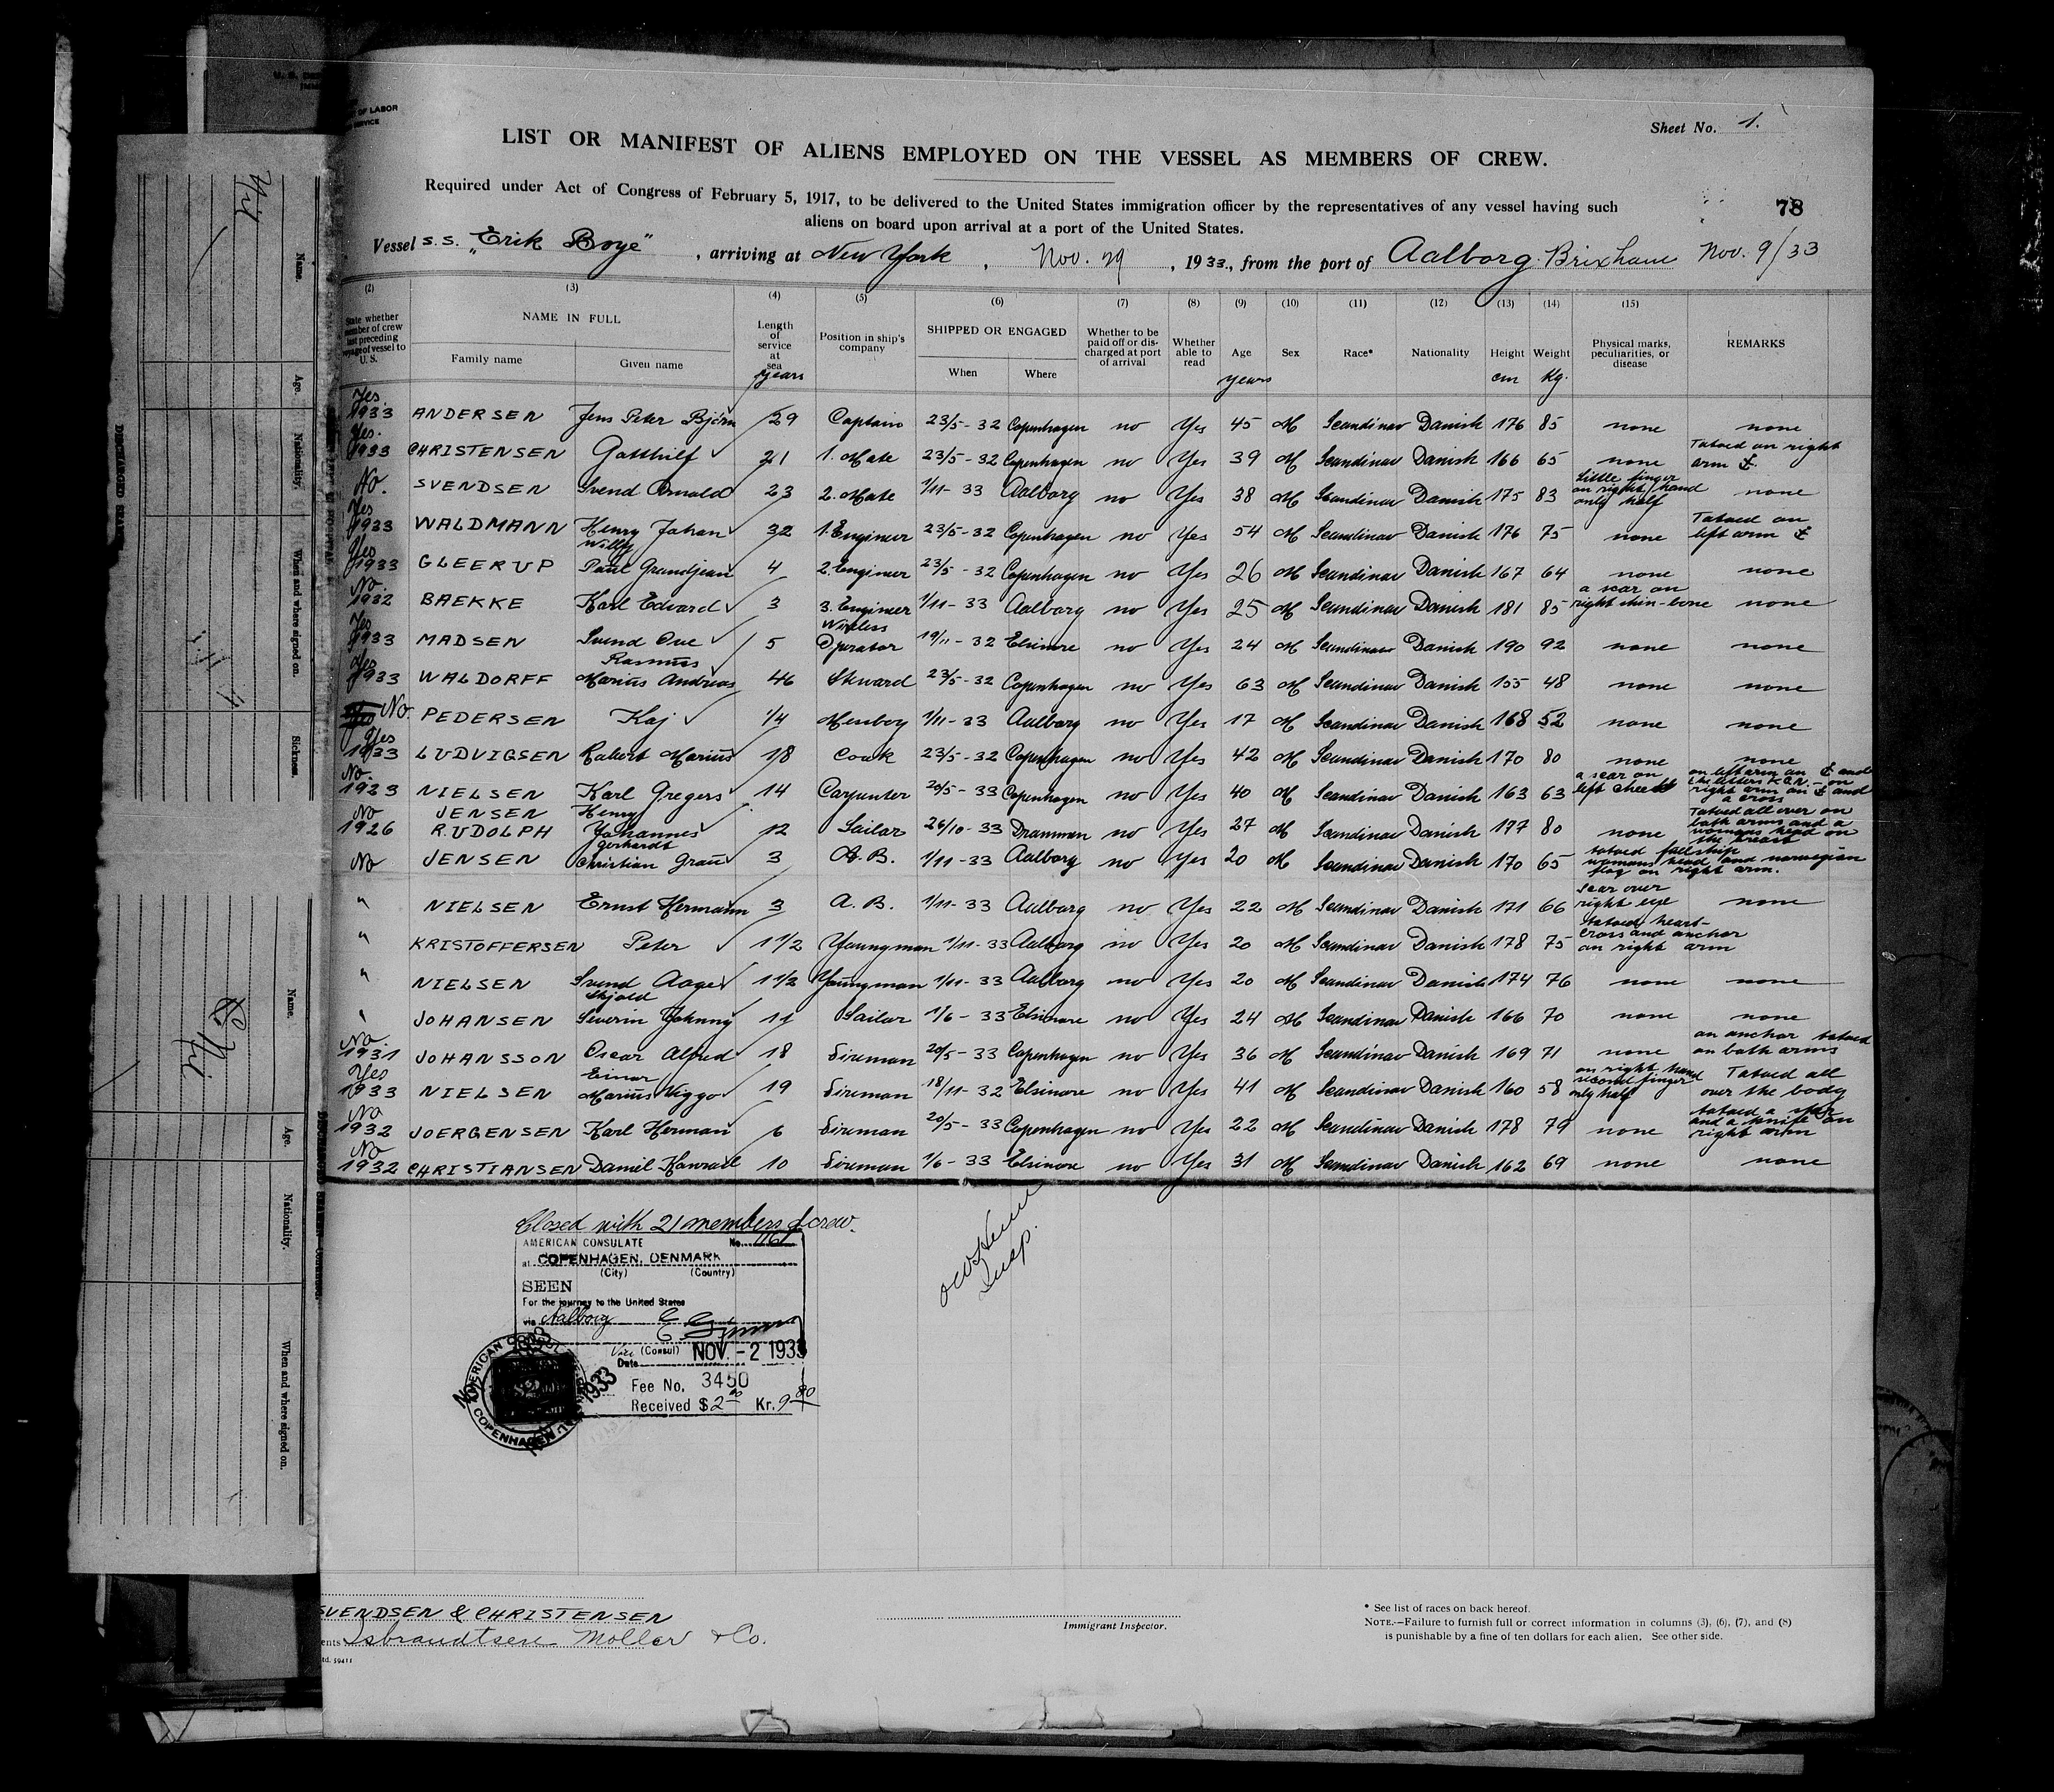 OF LABOR
SERVICE
Sheet No. 1.
LIST OR MANIFEST OF ALIENS EMPLOYED ON THE VESSEL AS MEMBERS OF CREW.
Required under Act of Congress of February 5, 1917, to be delivered to the United States immigration officer by the representatives of any vessel having such
aliens on board upon arrival at a port of the United States.
78
Vessel S.S. "Erik Boye", arriving at New York, Nov. 29, 1933, from the port of Aalborg Brixham Nov. 9/33
(2) (3) (4) (5) (6) (7) (8) (9) (10) (11) (12) (13) (14) (15)
State whether member of crew last preceding voyage of vessel to U.S.
NAME IN FULL
Family name Given name
Length of service at sea years
Position in ship's company
SHIPPED OR ENGAGED
When Where
Whether to be paid off or discharged at port of arrival
Whether able to read
Age years
Sex
Race*
Nationality
Height cm
Weight Kg.
Physical marks, peculiarities, or disease
REMARKS
Yes 1933 ANDERSEN Jens Peter Björn 29 Captain 23/5-32 Copenhagen no Yes 45 M Scandinav Danish 176 85 none none
Yes. 1933 CHRISTENSEN Gotthilf 21 1. Mate 23/5-32 Copenhagen no Yes 39 M Scandinav Danish 166 65 none Tatoed on right arm
No. SVENDSEN Svend Arnold 23 2. Mate 1/11-33 Aalborg no Yes 38 M Scandinav Danish 175 83 Little finger on right hand only half none
Yes 1933 WALDMANN Henry Johan Willy 32 1. Engineer 23/5-32 Copenhagen no Yes 54 M Scandinav Danish 176 75 none Tatoed on left arm
Yes 1933 GLEERUP Paul Grandjean 4 2. Engineer 23/5-32 Copenhagen no Yes 26 M Scandinav Danish 167 64 none none
No. 1932 BAEKKE Karl Edvard 3 3. Engineer 1/11-33 Aalborg no Yes 25 M Scandinav Danish 181 85 a scar on right shin-bone none
Yes 1933 MADSEN Svend Ove 5 Wireless Operator 19/11-32 Elsinore no Yes 24 M Scandinav Danish 190 92 none none
Yes 1933 WALDORFF Rasmus Marius Andreas 46 Steward 23/5-32 Copenhagen no Yes 63 M Scandinav Danish 155 48 none none
No. PEDERSEN Kaj 1/4 Messboy 1/11-33 Aalborg no Yes 17 M Scandinav Danish 168 52 none none
Yes 1933 LUDVIGSEN Robert Marius 18 Cook 23/5-32 Copenhagen no Yes 42 M Scandinav Danish 170 80 none none
No. 1923 NIELSEN Karl Gregers 14 Carpenter 20/5-33 Copenhagen no Yes 40 M Scandinav Danish 163 63 a scar on left cheek on left arm an and the letters K.G.N. - on right arm an and a cross
No 1926 JENSEN RUDOLPH Henry Johannes 12 Sailor 26/10-33 Drammen no Yes 27 M Scandinav Danish 177 80 none Tatoed all over on both arms and a womans head on the breast
No JENSEN Gerhardt Christian Grau 3 A.B. 1/11-33 Aalborg no Yes 20 M Scandinav Danish 170 65 tatoed fullship womans head and norwegian flag on right arm.
" NIELSEN Ernst Hermann 3 A.B. 1/11-33 Aalborg no Yes 22 M Scandinav Danish 171 66 scar over right eye none
" KRISTOFFERSEN Peter 1 1/2 Youngman 1/11-33 Aalborg no Yes 20 M Scandinav Danish 178 75 tatoed heart-cross and anchor on right arm
" NIELSEN Svend Aage 1 1/2 Youngman 1/11-33 Aalborg no Yes 20 M Scandinav Danish 174 76 none none
" JOHANSEN Skjold Severin Johnny 11 Sailor 1/6-33 Elsinore no Yes 24 M Scandinav Danish 166 70 none none
No. 1931 JOHANSSON Oscar Alfred 18 Fireman 20/5-33 Copenhagen no Yes 36 M Scandinav Danish 169 71 none an anchor tatoed on both arms
Yes 1933 NIELSEN Einar Marius Viggo 19 Fireman 18/11-32 Elsinore no Yes 41 M Scandinav Danish 160 58 on right hand second finger only half Tatoed all over the body
No 1932 JOERGENSEN Karl Herman 6 Fireman 20/5-33 Copenhagen no Yes 22 M Scandinav Danish 178 79 none tatoed a star and a knife on right arm
No 1932 CHRISTIANSEN Daniel Konrad 10 Fireman 1/6-33 Elsinore no Yes 31 M Scandinav Danish 162 69 none none
Closed with 21 members of crew.
AMERICAN CONSULATE No.
at COPENHAGEN, DENMARK
(City) (Country)
SEEN
For the journey to the United States
via Aalborg
Vice (Consul)
Date NOV. -2 1933
Fee No. 3450
Received $2 00 Kr. 9 80
AMERICAN CONSUL
COPENHAGEN
1933
Insp.
SVENDSEN & CHRISTENSEN
ents Isbrandtsen Moller & Co.
Immigrant Inspector.
* See list of races on back hereof.
NOTE.—Failure to furnish full or correct information in columns (3), (6), (7), and (8)
is punishable by a fine of ten dollars for each alien. See other side.
td. 59411
Name.
Age.
Nationality.
When and where signed on.
Sickness.
Nil
DISCHARGED SEAMEN
Name.
Age.
Nationality.
When and where signed on.
Nil